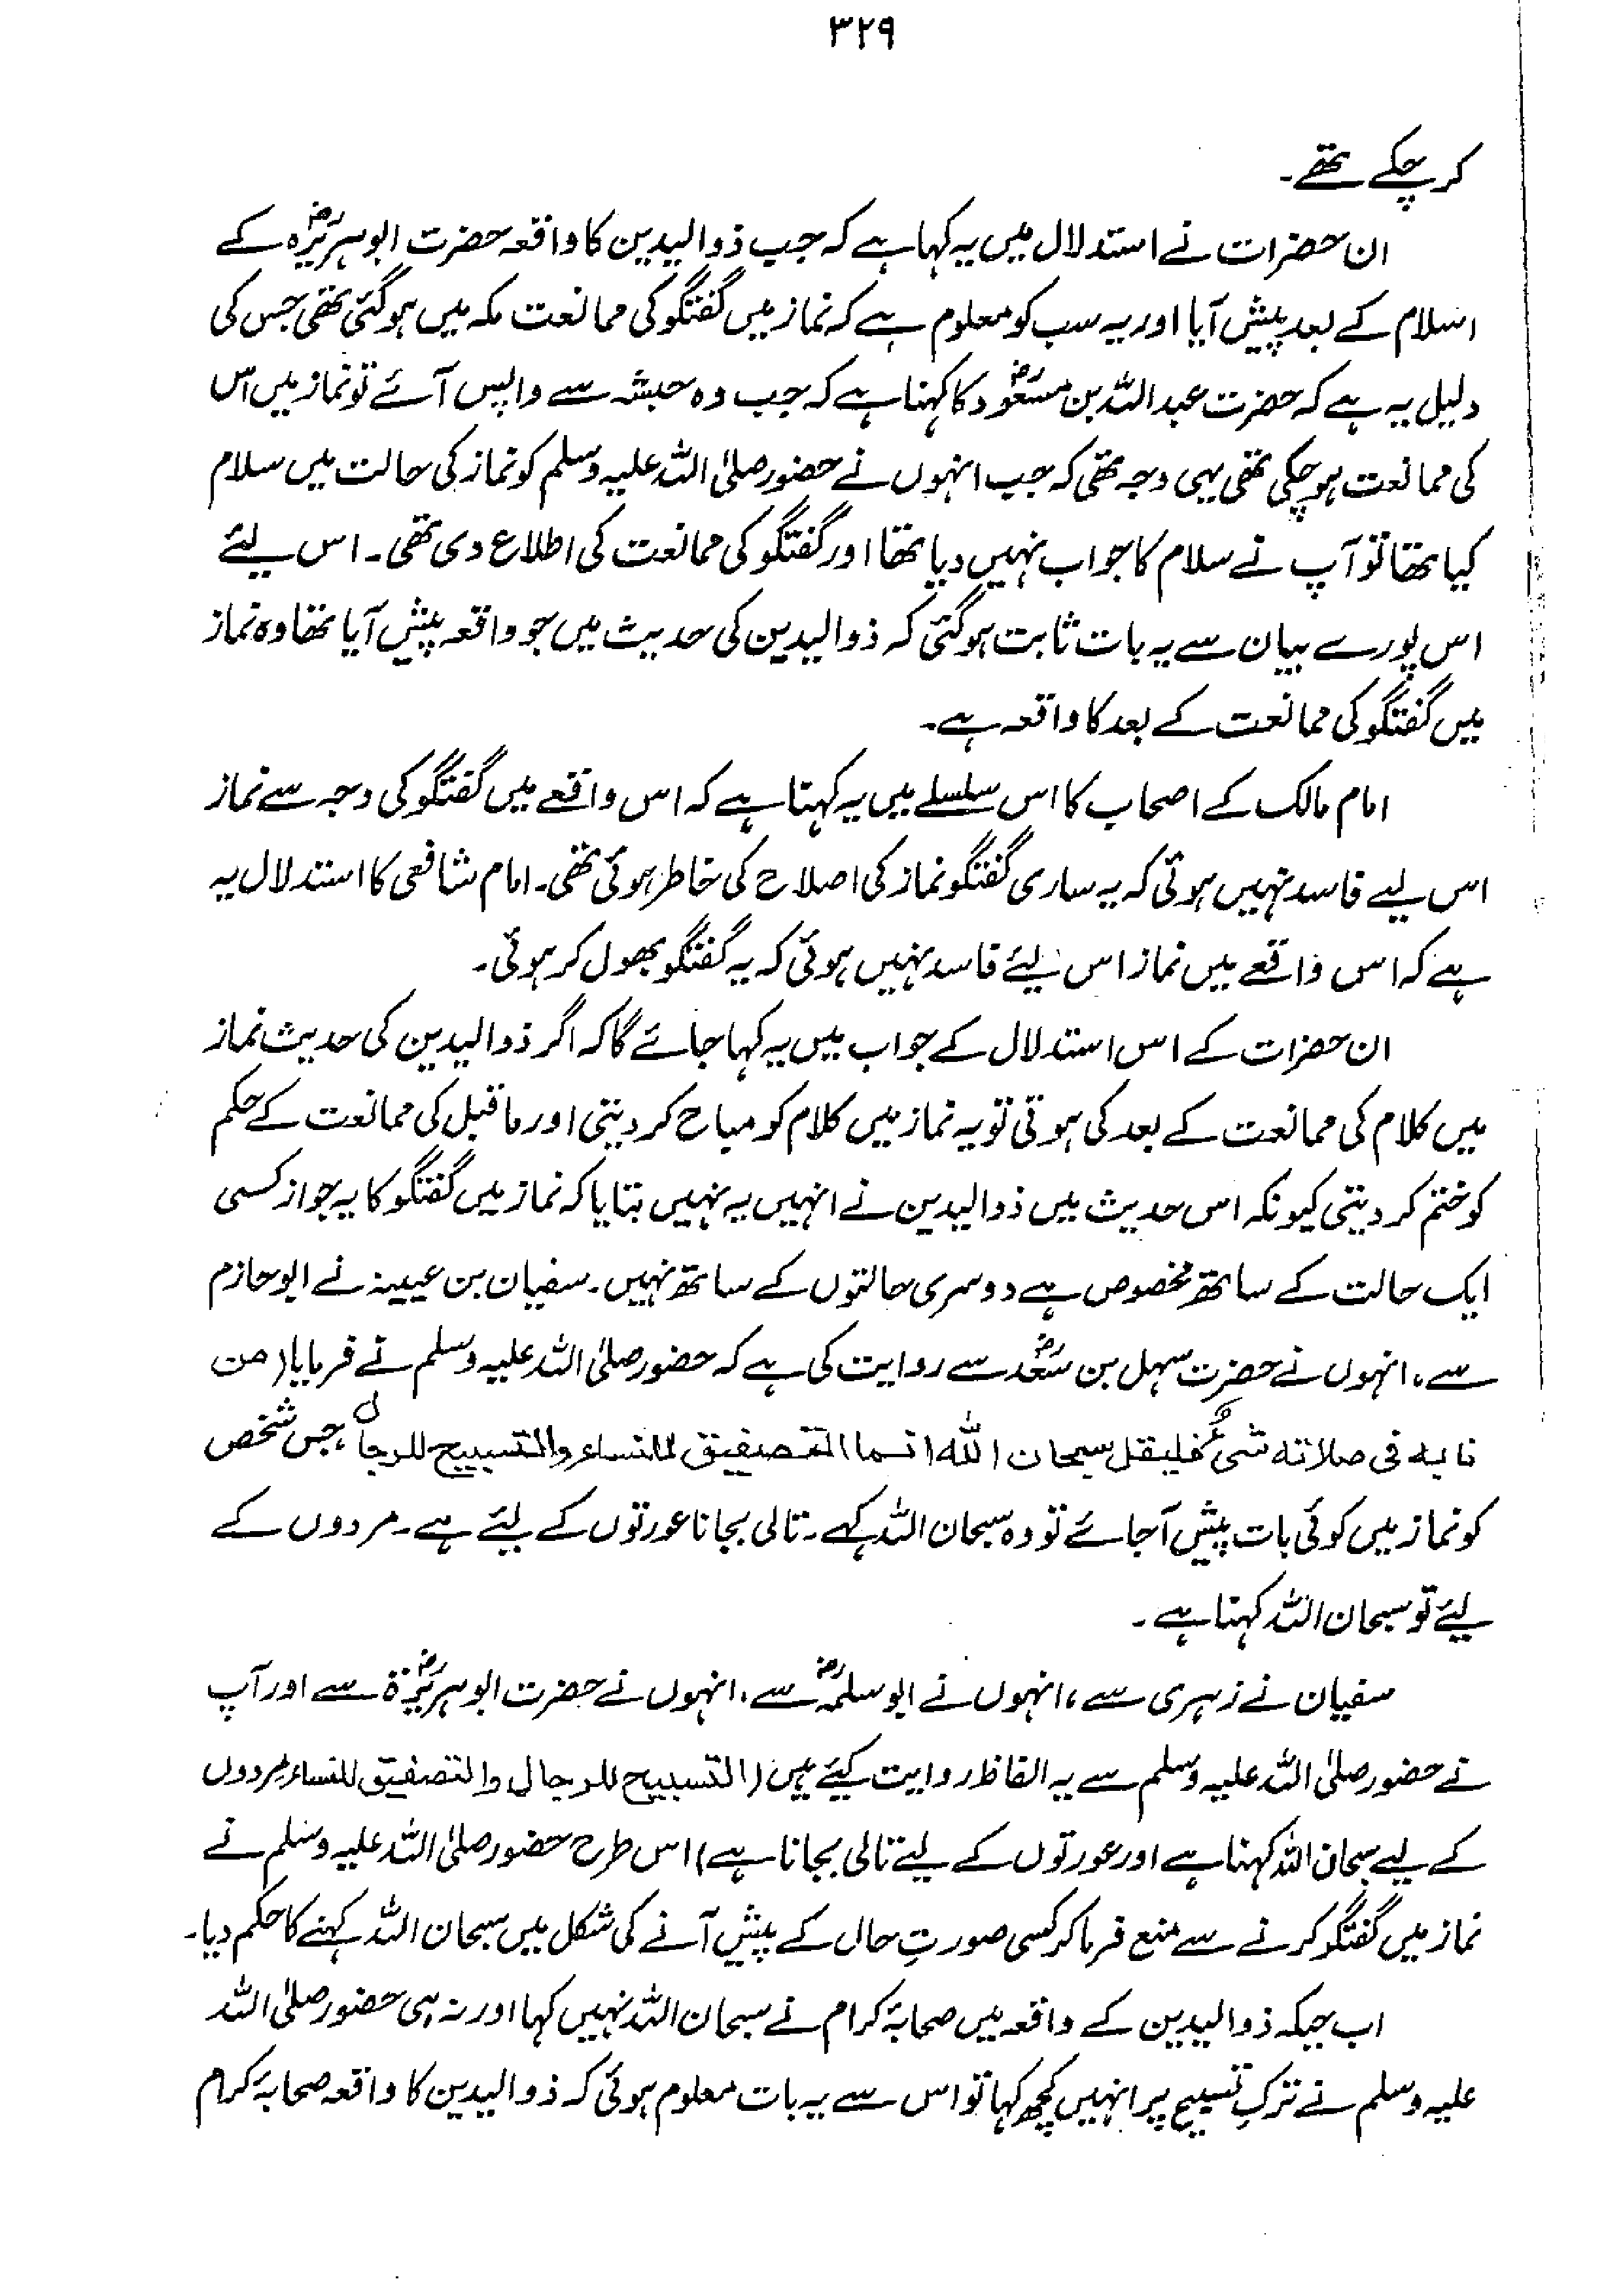 ۳۲۹
کر چکے تھے۔
ان حضرات نے استدلال میں یہ کہا ہے کہ جب ذوالیدین کا واقعہ حضرت ابوہریرہؓ کے
اسلام کے بعد پیش آیا اور یہ سب کو معلوم ہے کہ نماز میں گفتگو کی ممانعت مکہ میں ہوگئی تھی جس کی
دلیل یہ ہے کہ حضرت عبداللہ بن مسعودؓ کا کہنا ہے کہ جب وہ حبشہ سے واپس آئے تو نماز میں اس
کی ممانعت ہوچکی تھی یہی وجہ تھی کہ جب انہوں نے حضور صلی اللہ علیہ وسلم کو نماز کی حالت میں سلام
کیا تھا تو آپ نے سلام کا جواب نہیں دیا تھا اور گفتگو کی ممانعت کی اطلاع دی تھی۔ اس لیئے
اس پورے بیان سے یہ بات ثابت ہوگئی کہ ذوالیدین کی حدیث میں جو واقعہ پیش آیا تھا وہ نماز
میں گفتگو کی ممانعت کے بعد کا واقعہ ہے۔
امام مالک کے اصحاب کا اس سلسلے میں یہ کہنا ہے کہ اس واقعے میں گفتگو کی وجہ سے نماز
اس لیے فاسد نہیں ہوئی کہ یہ ساری گفتگو نماز کی اصلاح کی خاطر ہوئی تھی۔ امام شافعی کا استدلال یہ
ہے کہ اس واقعے میں نماز اس لیئے فاسد نہیں ہوئی کہ یہ گفتگو بھول کر ہوئی۔
ان حضرات کے اس استدلال کے جواب میں یہ کہا جائے گا کہ اگر ذوالیدین کی حدیث نماز
میں کلام کی ممانعت کے بعد کی ہوتی تو یہ نماز میں کلام کو مباح کر دیتی اور ماقبل کی ممانعت کے حکم
کو ختم کر دیتی کیونکہ اس حدیث میں ذوالیدین نے انہیں یہ نہیں بتایا کہ نماز میں گفتگو کا یہ جواز کسی
ایک حالت کے ساتھ مخصوص ہے دوسری حالتوں کے ساتھ نہیں۔ سفیان بن عیینہ نے ابوحازم
سے، انہوں نے حضرت سہل بن سعدؓ سے روایت کی ہے کہ حضور صلی اللہ علیہ وسلم نے فرمایا (من
نابه فی صلاته شیٔ فلیقل سبحان الله انما التصفیق للنساء والتسبیح للرجال، جس شخص
کو نماز میں کوئی بات پیش آجائے تو وہ سبحان اللہ کہے۔ تالی بجانا عورتوں کے لیئے ہے۔ مردوں کے
لیئے تو سبحان اللہ کہنا ہے۔
سفیان نے زہری سے، انہوں نے ابوسلمہؓ سے، انہوں نے حضرت ابوہریرۃؓ سے اور آپ
نے حضور صلی اللہ علیہ وسلم سے یہ الفاظ روایت کیئے ہیں (التسبیح للرجال والتصفیق للنساء مردوں
کے لیے سبحان اللہ کہنا ہے اور عورتوں کے لیے تالی بجانا ہے) اس طرح حضور صلی اللہ علیہ وسلم نے
نماز میں گفتگو کرنے سے منع فرما کر کسی صورتِ حال کے پیش آنے کی شکل میں سبحان اللہ کہنے کا حکم دیا۔
اب جبکہ ذوالیدین کے واقعہ میں صحابۂ کرام نے سبحان اللہ نہیں کہا اور نہ ہی حضور صلی اللہ
علیہ وسلم نے ترکِ تسبیح پر انہیں کچھ کہا تو اس سے یہ بات معلوم ہوئی کہ ذوالیدین کا واقعہ صحابۂ کرام